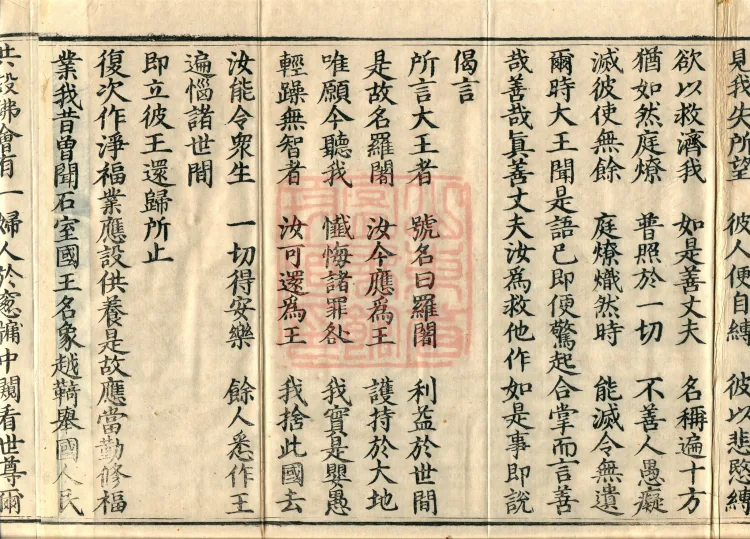 見我失所望　彼人便自縛　彼以悲愍縛
欲以救濟我　如是善丈夫　名稱遍十方
猶如然庭燎　普照於一切　不善人愚癡
滅彼使無餘　庭燎熾然時　能滅令無遺
爾時大王聞是語已即便驚起合掌而言善
哉善哉眞善丈夫汝為救他作如是事即說
偈言
所言大王者　號名曰羅闍　利益於世間
是故名羅闍　汝今應為王　護持於大地
唯願今聽我　懺悔諸罪咎　我實是嬰愚
輕躁無智者　汝可還為王　我捨此國去
汝能令衆生　一切得安樂　餘人悉作王
遍惱諸世間
即立彼王還歸所止
復次作淨福業應設供養是故應當勤修福
業我昔曾聞石室國王名象越鞞舉國人民
共設佛會有一婦人於窓牖中闚看世尊爾